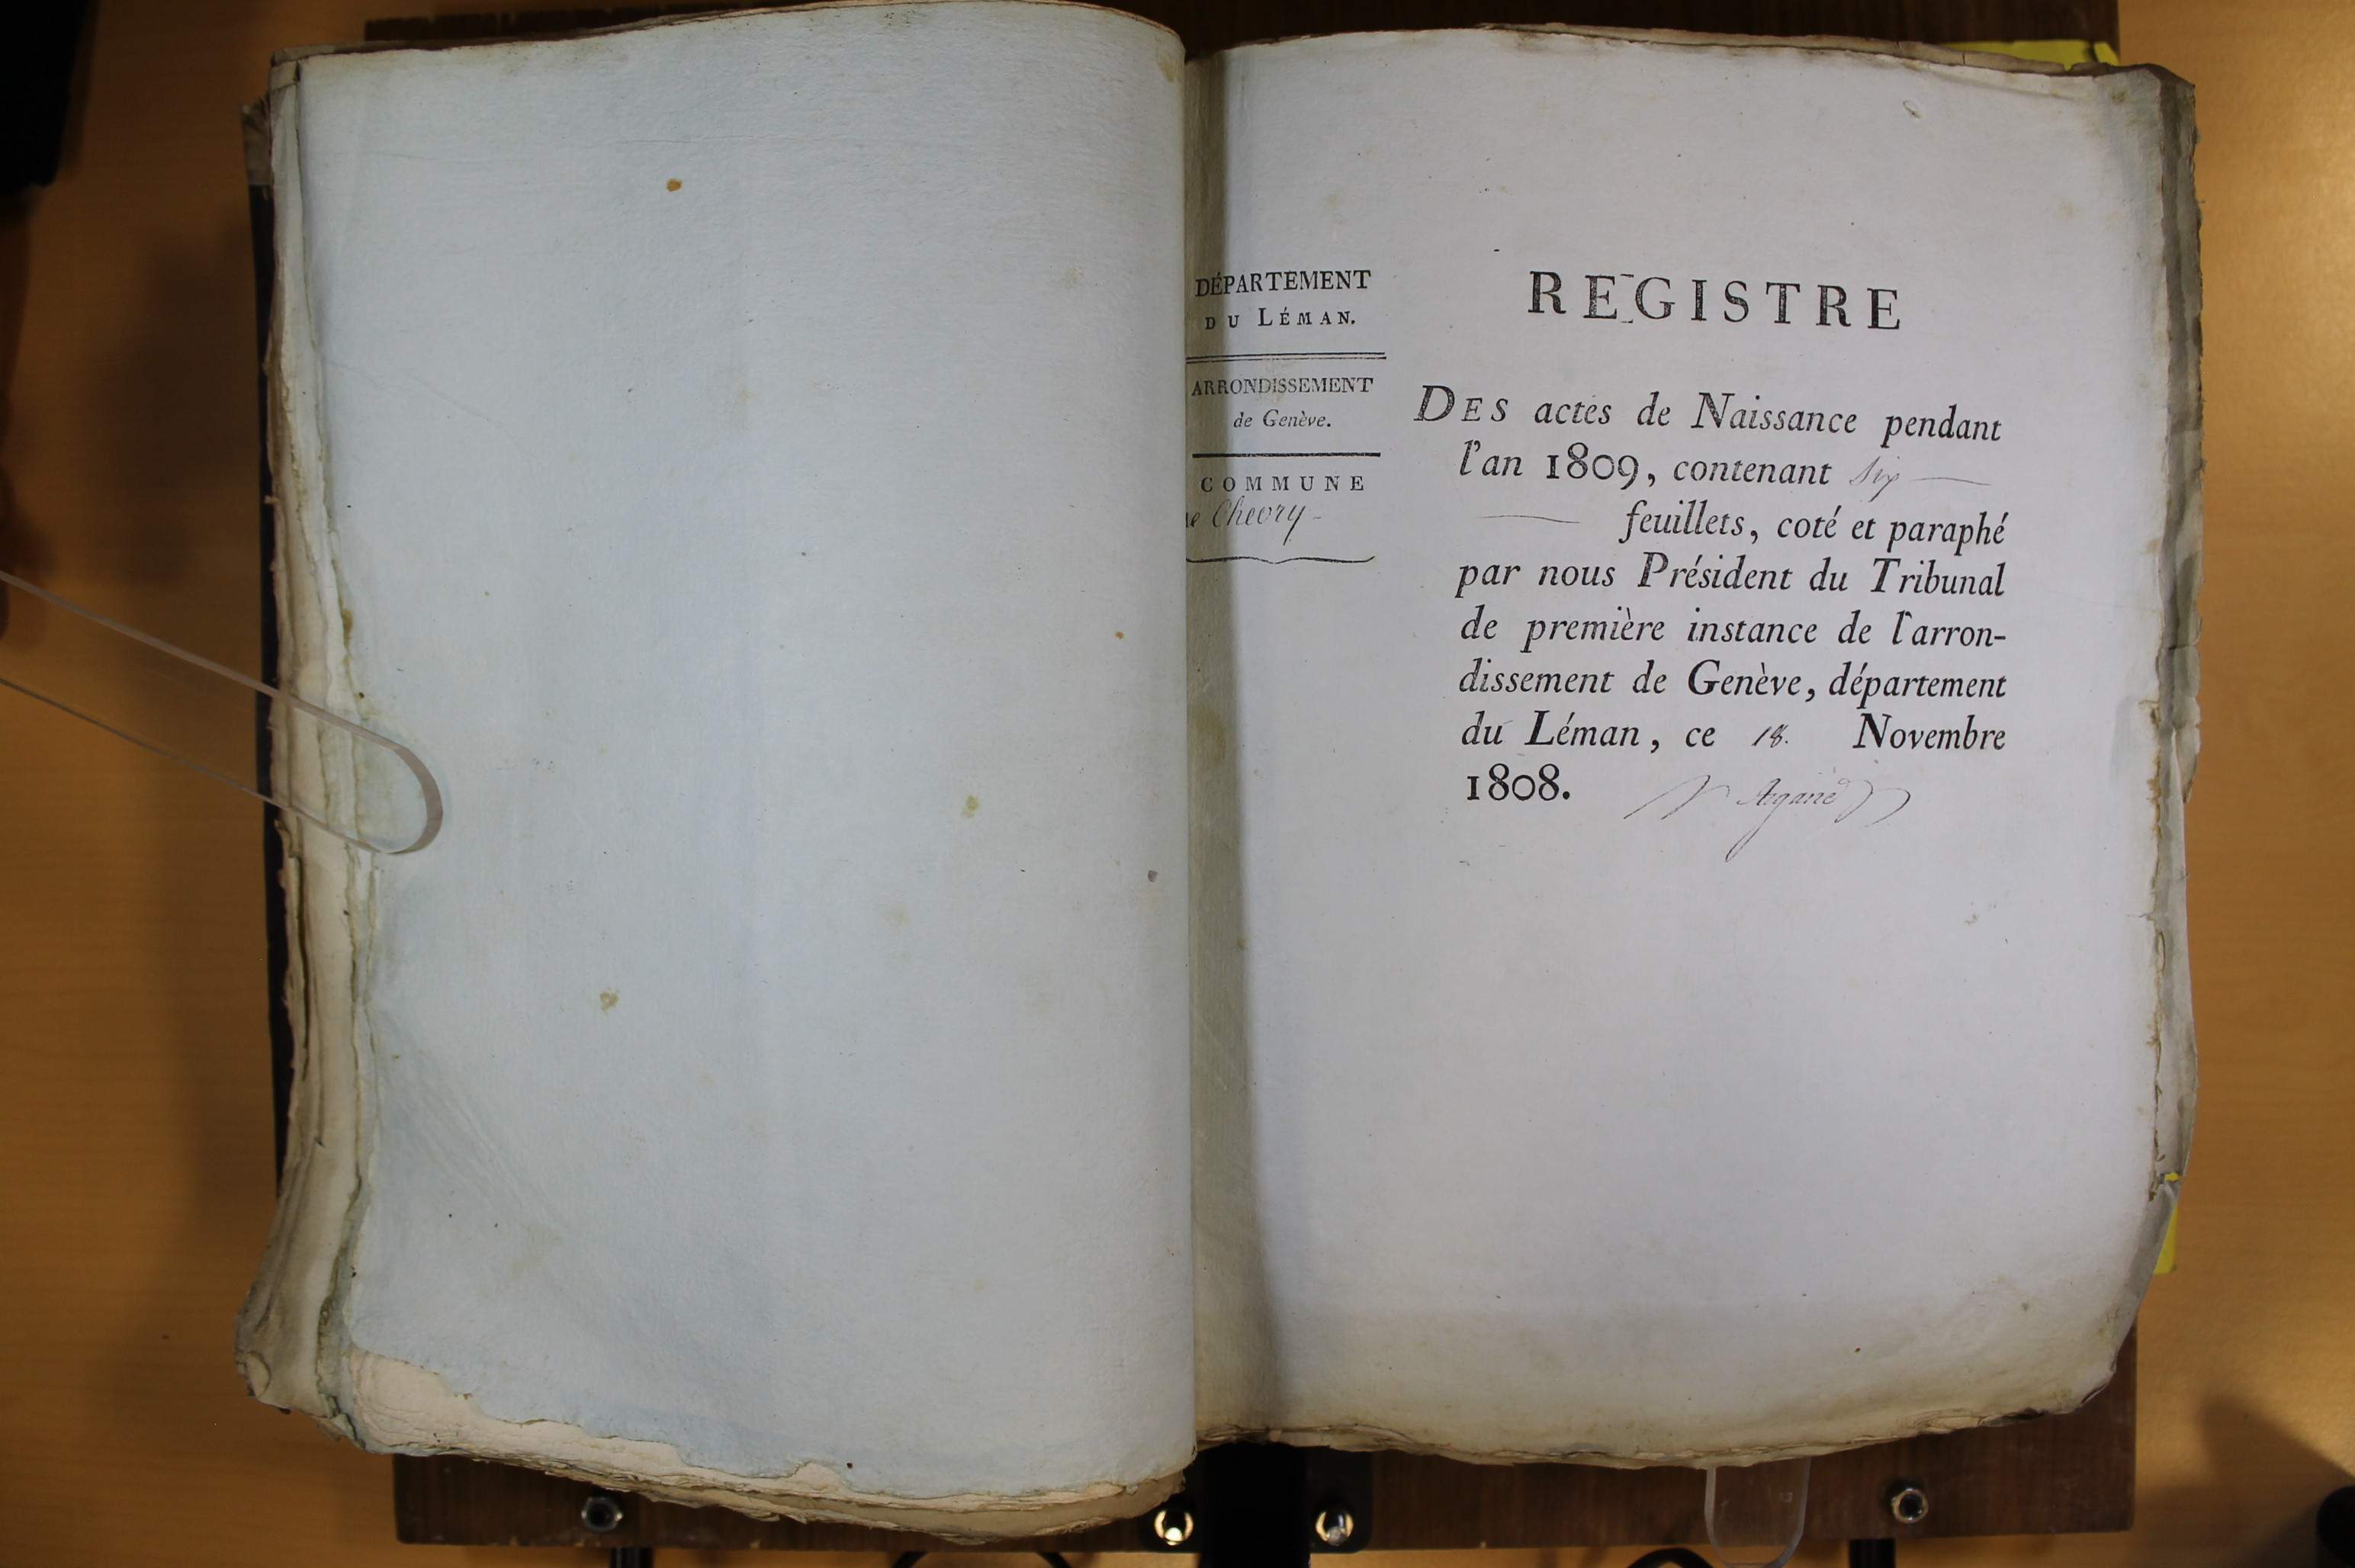 DÉPARTEMENT
DU LÉMAN.
ARRONDISSEMENT
de Genève.
COMMUNE
de Chevry
REGISTRE
DES actes de Naissance pendant
l'an 1809, contenant six
feuillets, coté et paraphé
par nous Président du Tribunal
de première instance de l'arron-
dissement de Genève, département
du Léman, ce 18. Novembre
1808.
Argand